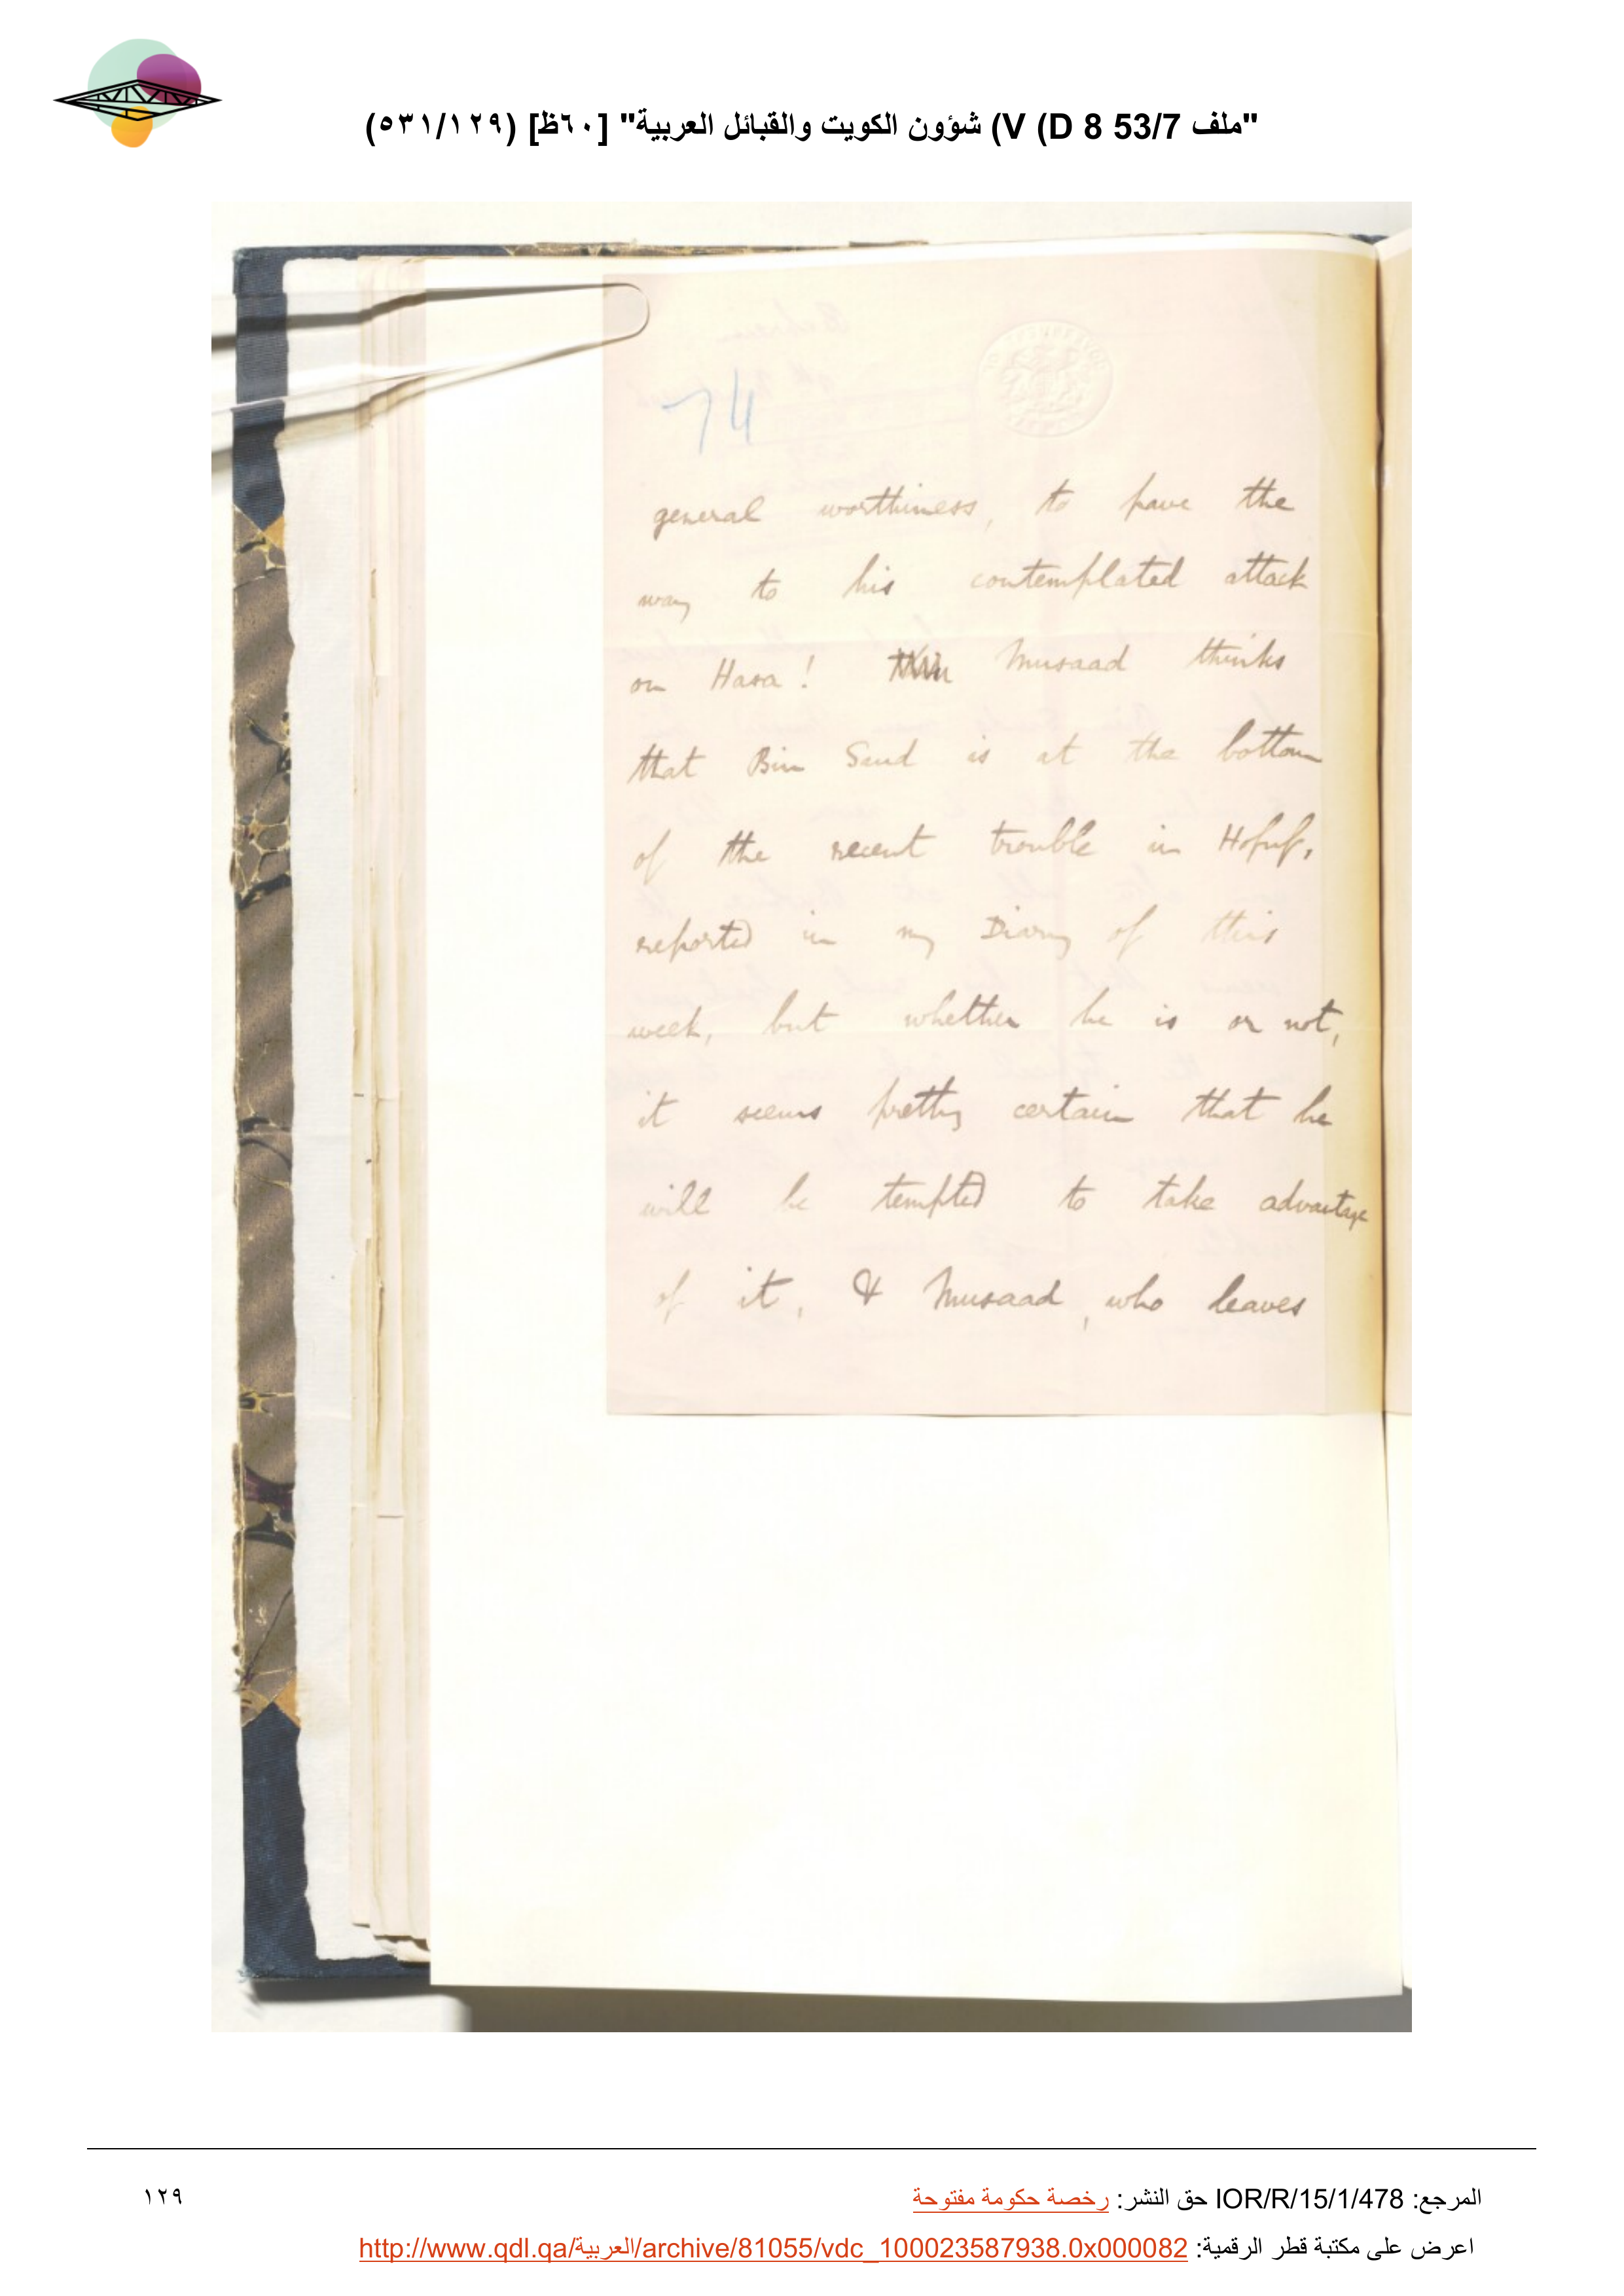 "ملف 53/7 D 8) V) شؤون الكويت والقبائل العربية" [٦٠ظ] (٥٣١/١٢٩)
74
general worthiness, to pave the
way to his contemplated attack
on Hasa! Musaad thinks
that Bin Saud is at the bottom
of the recent trouble in Hofuf,
reported in my Diary of this
week, but whether he is or not,
it seems pretty certain that he
will be tempted to take advantage
of it, & Musaad, who leaves
المرجع: IOR/R/15/1/478 حق النشر: رخصة حكومة مفتوحة
١٢٩
اعرض على مكتبة قطر الرقمية: http://www.qdl.qa/العربية/archive/81055/vdc_100023587938.0x000082